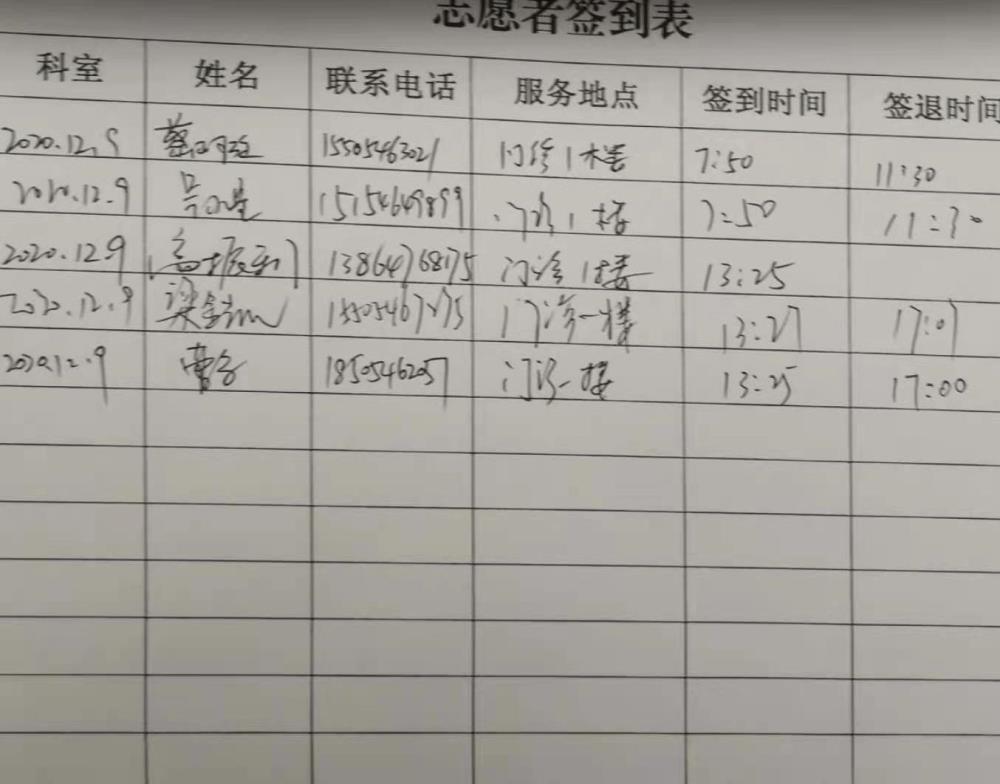 志愿者签到表
科室 姓名 联系电话 服务地点 签到时间 签退时间
2020.12.9 15505463021 门诊1楼 7:50 11:30
2020.12.9 15154649899 门诊1楼 7:50 11:30
2020.12.9 13864768175 门诊1楼 13:25
2020.12.9 梁 门诊一楼 13:27 17:01
2020.12.9 18505462057 门诊一楼 13:25 17:00